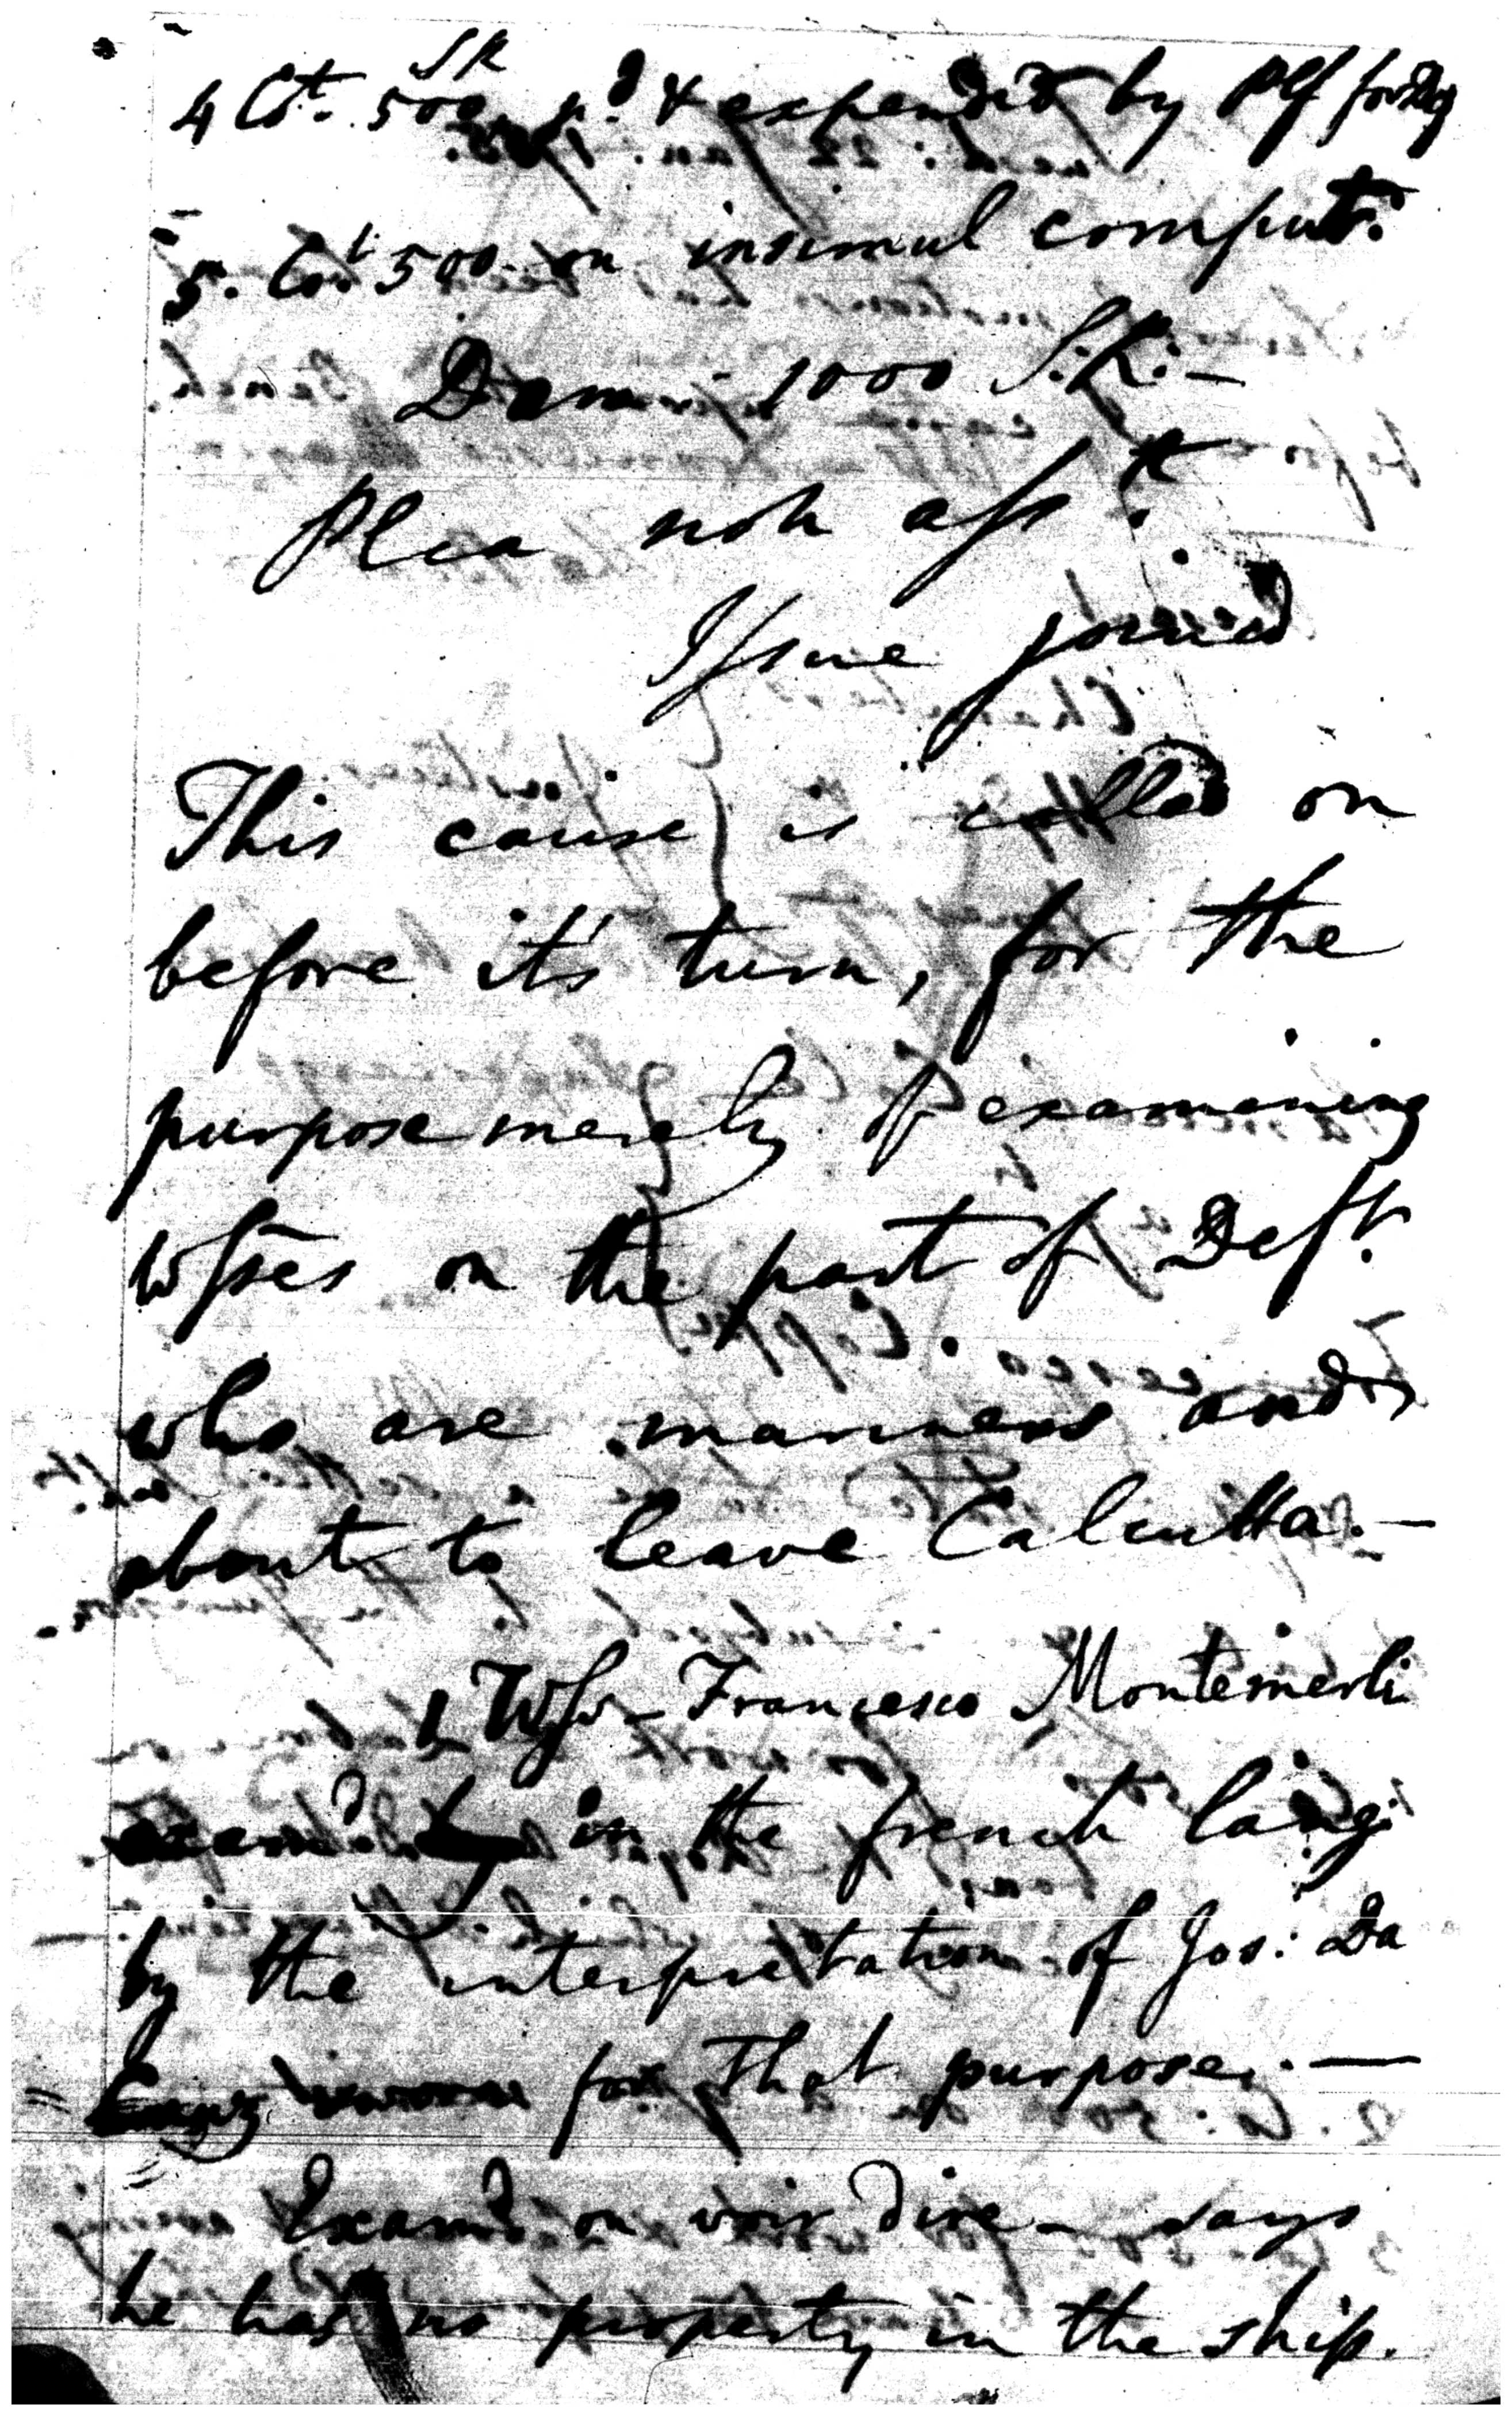 S R
4 Ct. 500 pd & expended by Plf for Def
5. Ct. 500. on insimul comput:
Dam - 1000 S.R. —
Plea non asst
Issue joined
This cause is called on
before it's turn, for the
purpose merely of examining
wsses on the part of Deft.
who are mariners and
about to leave Calcutta. —
1 Wss - Francesco Montemerli
examd in the french lang:
by the interpretation of Jos: Da
sworn for that purpose. —
Examd on voir dire - says
he has no property in the ship.